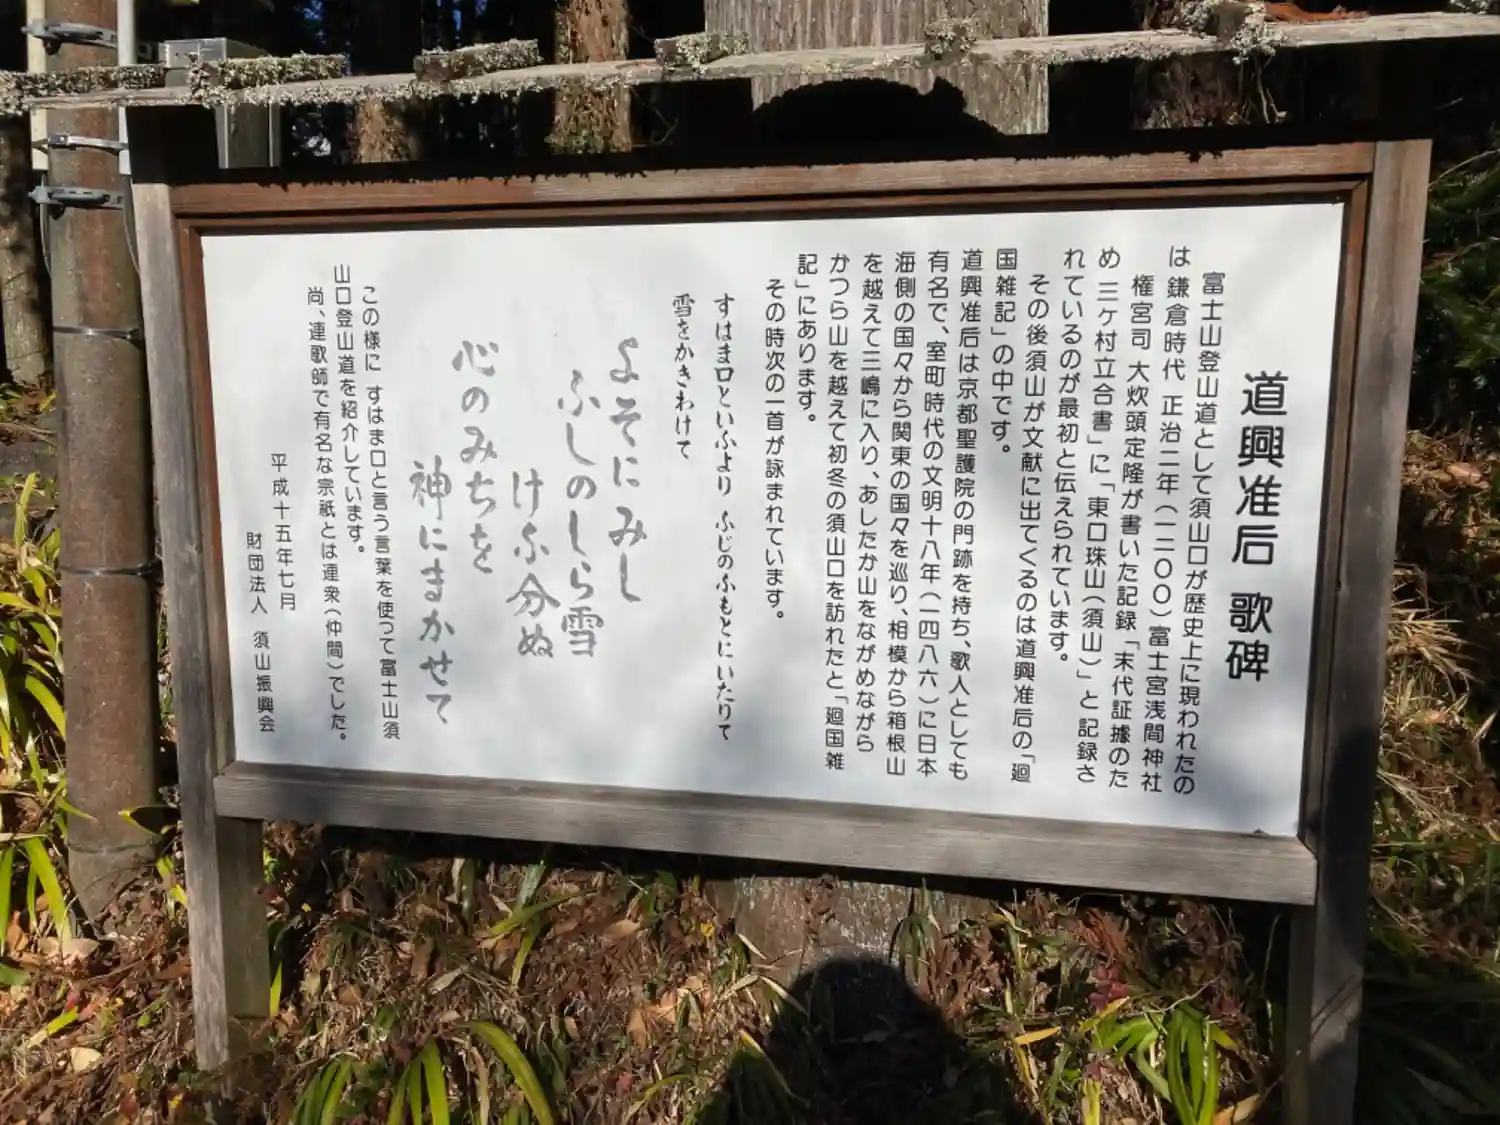 道興准后 歌碑
富士山登山道として須山口が歴史上に現われたの
は鎌倉時代 正治二年(一二〇〇)富士宮浅間神社
権宮司 大炊頭定隆が書いた記録「末代証據のた
め 三ケ村立合書」に、「東口珠山(須山)」と記録さ
れているのが最初と伝えられています。
その後須山が文献に出てくるのは道興准后の「廻
国雑記」の中です。
道興准后は京都聖護院の門跡を持ち、歌人としても
有名で、室町時代の文明十八年(一四八六)に日本
海側の国々から関東の国々を巡り、相模から箱根山
を越えて三嶋に入り、あしたか山をながめながら
かつら山を越えて初冬の須山口を訪れたと「廻国雑
記」にあります。
その時次の一首が詠まれています。
すはま口といふより ふじのふもとにいたりて
雪をかきわけて
よそにみし
ふしのしら雪
けふ分ぬ
心のみちを
神にまかせて
この様に すはま口と言う言葉を使つて富士山須
山口登山道を紹介しています。
尚、連歌師で有名な宗祇とは連衆(仲間)でした。
平成十五年七月
財団法人 須山振興会